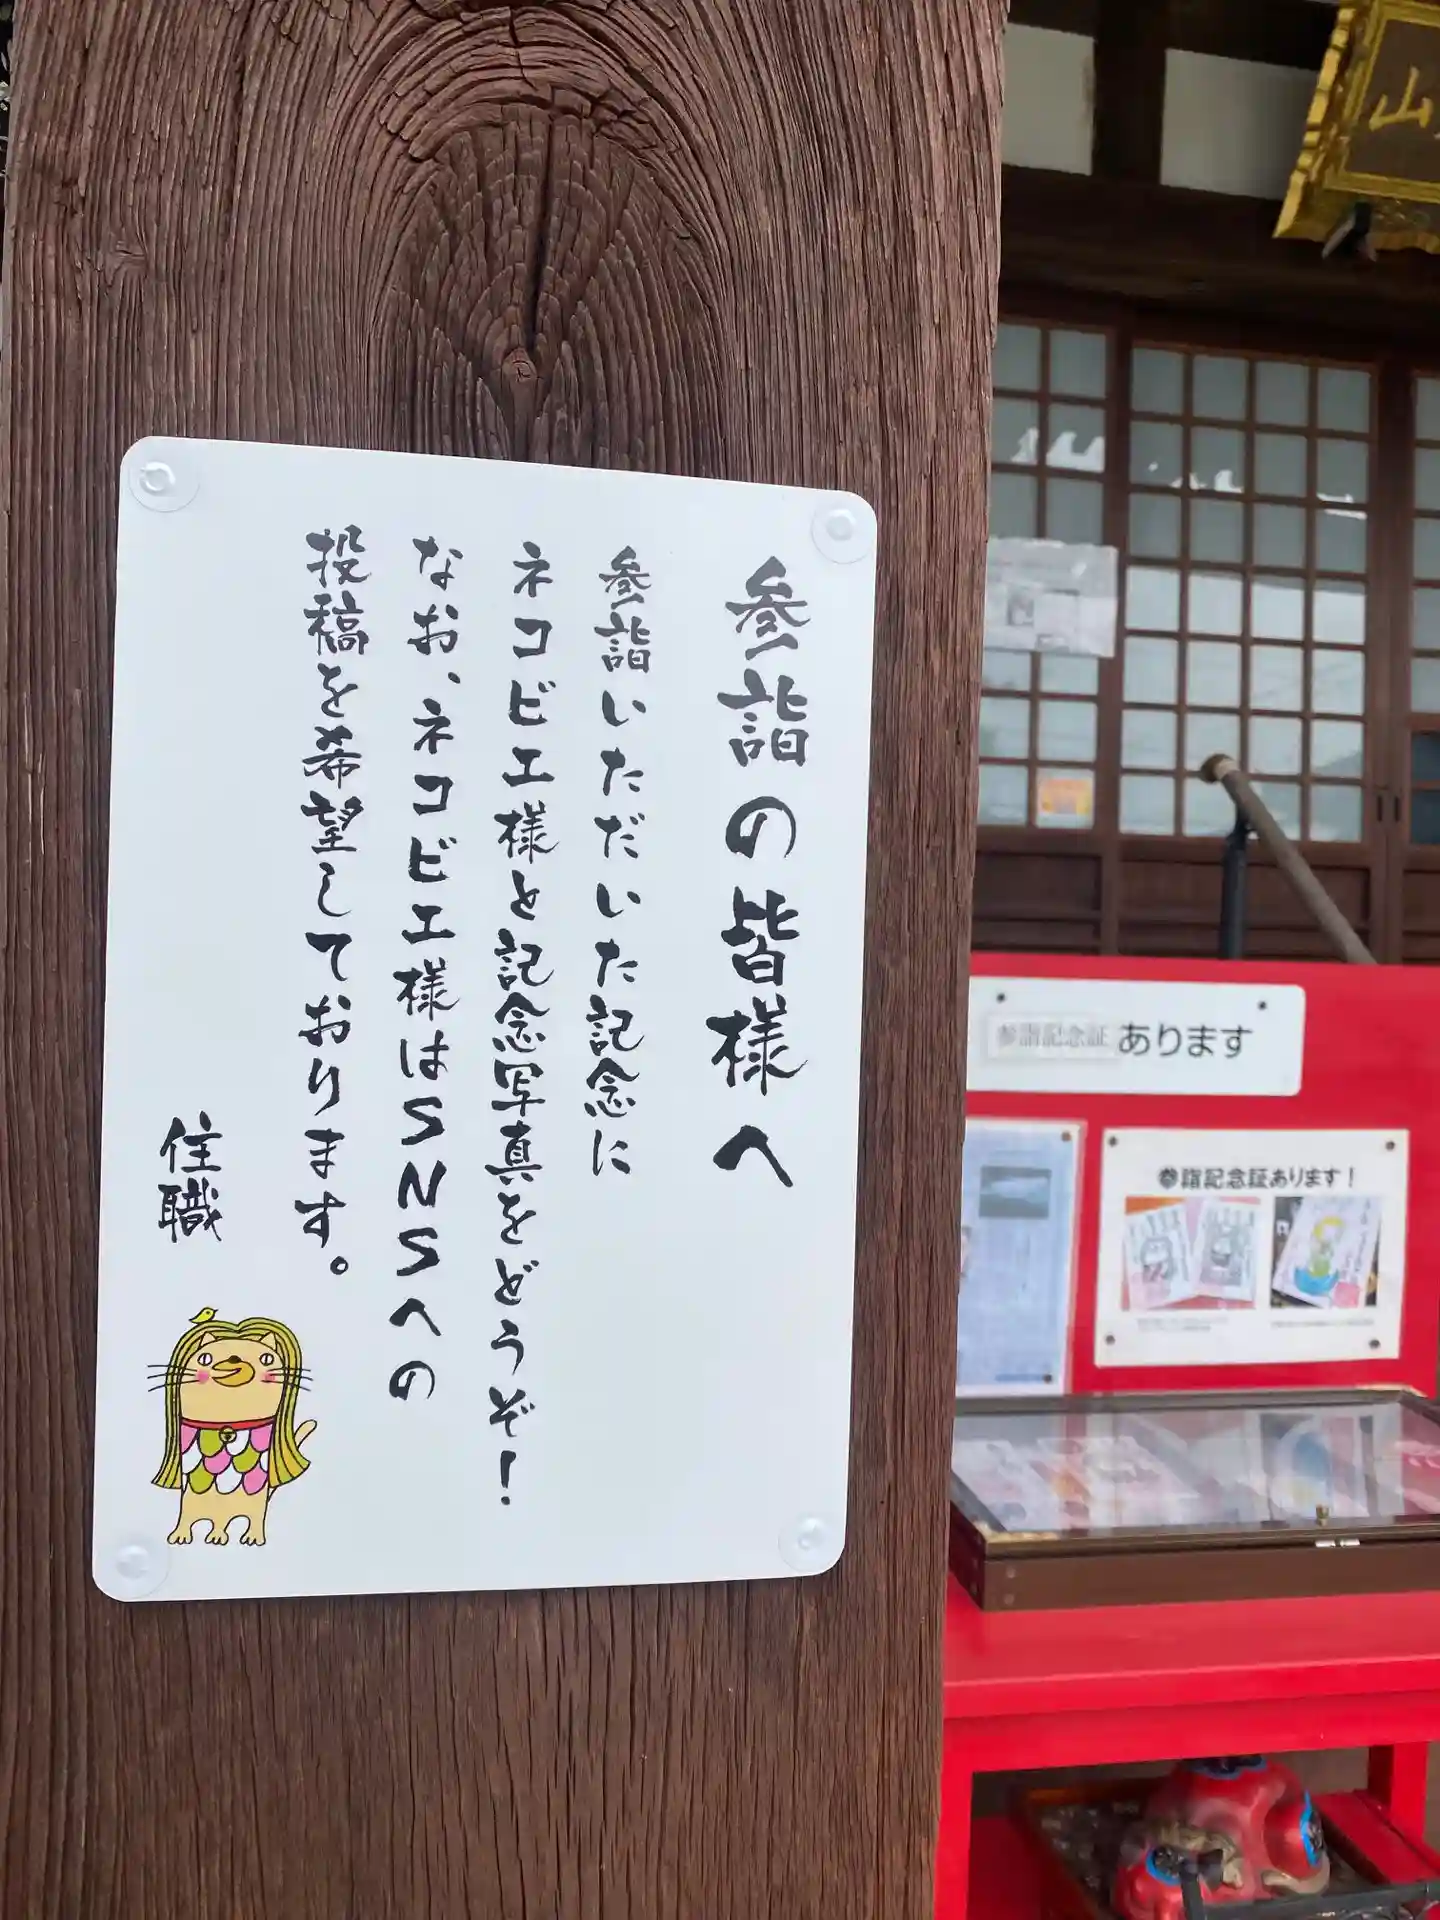 参詣の皆様へ
参詣いただいた記念に
ネコビエ様と記念写真をどうぞ！
なお、ネコビエ様はSNSへの
投稿を希望しております。
住職
山
参詣記念証あります
参詣記念証あります！